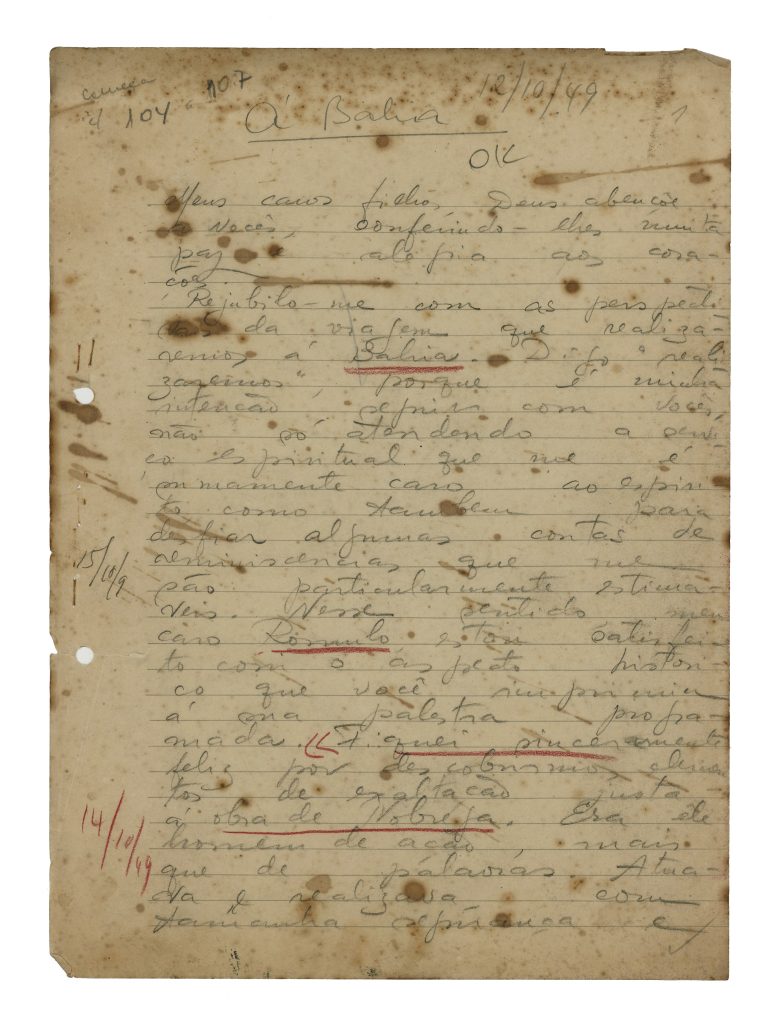 começa
104 " 107
12/10/49
1
Á Bahia
OK
Meus caros filhos, Deus abençôe
a vocês, conferindo-lhes muita
paz e alegria aos cora-
ções
Rejubilo-me com as perspecti
vas da viagem que realiza-
remos á Bahia. Digo "reali
zaremos", porque é minha
11
intenção seguir com vocês,
não só atendendo a servi-
ço espiritual que me é
imamente caro ao espiri
to como tambem para
desfiar algumas contas de
15/10/9
reminiscencias que me
são particularmente estima-
veis. Nesse sentido meu
caro Rômulo estou satisfei
to com o aspecto histori-
co que você imprimiu
á sua palestra progra-
mada. Fiquei sinceramente
feliz por descobrirmos elemen
tos de exaltação justa
á obra de Nobrega. Era ele
14/10/49
homem de ação, mais
que de palavras. Atua-
va e realizava com
tamanha segurança e